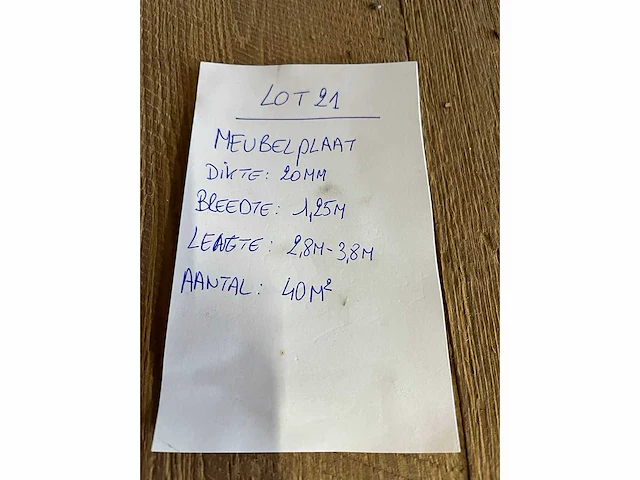 LOT 21
MEUBELPLAAT
DIKTE: 20MM
BREEDTE: 1,25M
LENGTE: 2,8M-3,8M
AANTAL: 40M²